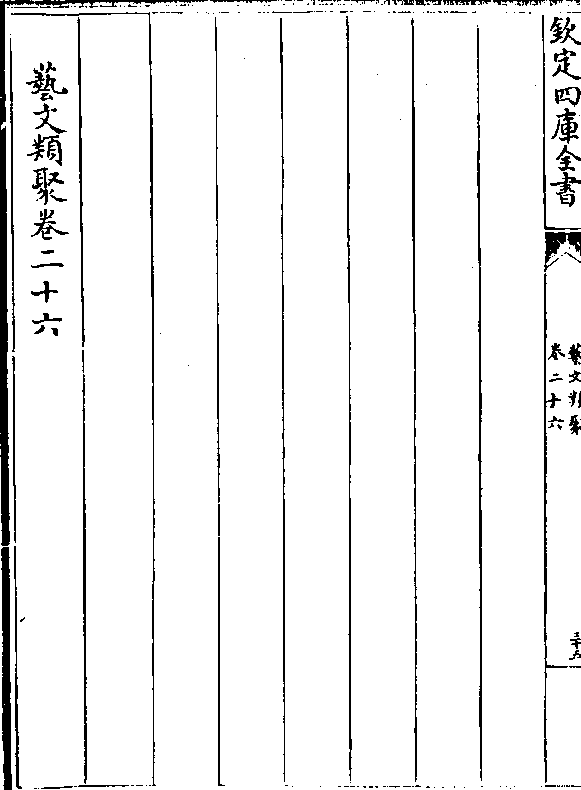 欽定四庫全書
藝文類聚
卷二十六
三十五
藝文類聚卷二十六